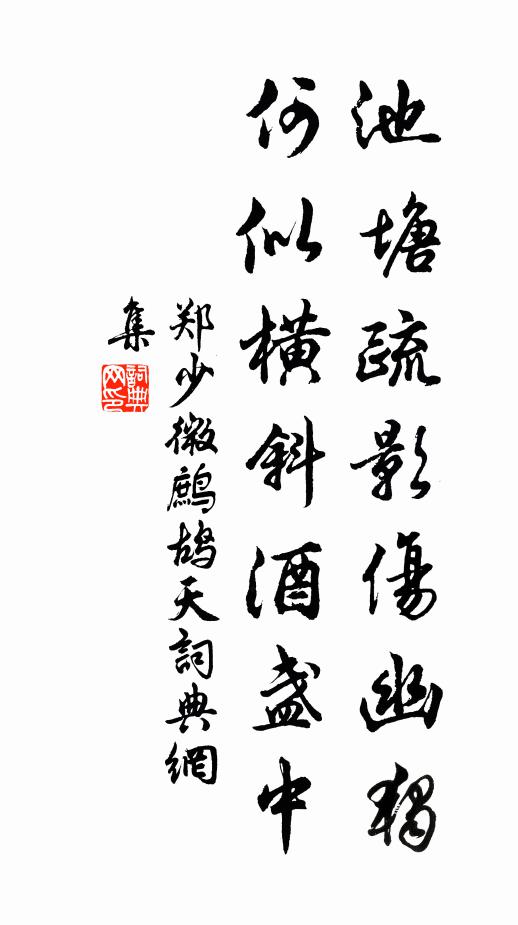 池塘疏影傷幽獨
何似橫斜酒盞中
郑少微鷓鴣天詞典網
集
詞典
网印